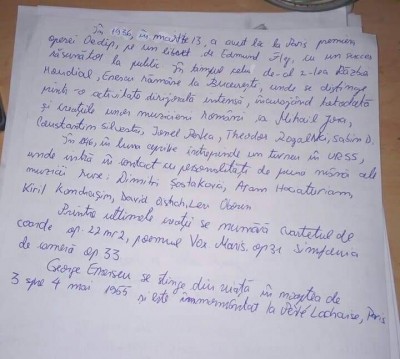 În 1936, în martie 13, a avut loc la Paris premiera
operei Oedip, pe un libret de Edmund Fleg, cu un succes
răsunător la public. În timpul celui de-al 2-lea Război
Mondial, Enescu rămâne la București, unde se distinge
printr-o activitate dirijorală intensă, încurajând totodată
și creațiile unor muzicieni români ca Mihail Jora,
Constantin Silvestri, Ionel Perlea, Theodor Rogalski, Sabin D.
În 1946, în luna aprilie întreprinde un turneu în URSS,
unde intră în contact cu personalități de prima mână ale
muzicii ruse: Dimitri Șostakovici, Aram Haciaturian,
Kiril Kondrașin, David Oistrah, Lev Oborin
Printre ultimele creații se numără cvartetul de
coarde op 22 nr 2, poemul Vox Maris op 31 simfonia
de cameră op 33
George Enescu se stinge din viață în noaptea de
3 spre 4 mai 1955 și este înmormântat la Père Lachaise, Paris